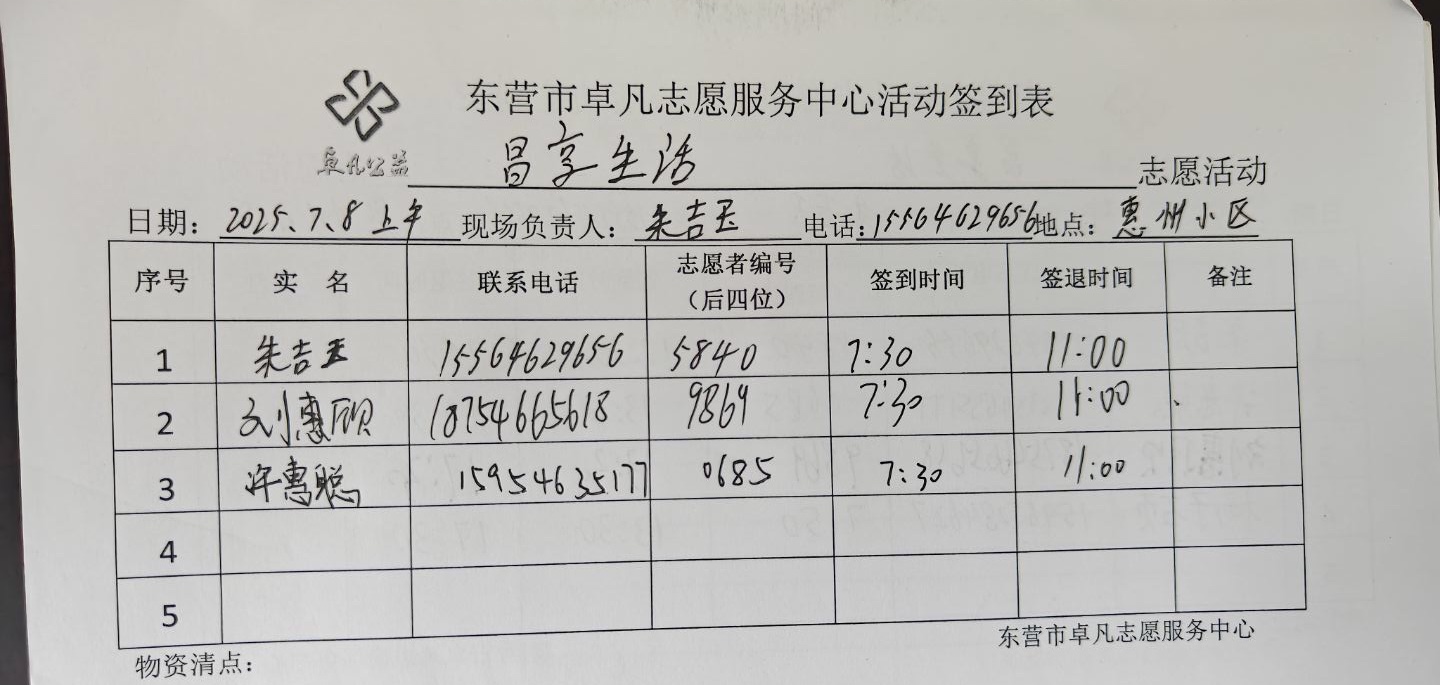 东营市卓凡志愿服务中心活动签到表
卓凡公益 昌享生活 志愿活动
日期: 2025.7.8 上午 现场负责人: 朱吉玉 电话: 15564629656 地点: 惠州小区
序号 实 名 联系电话 志愿者编号（后四位） 签到时间 签退时间 备注
1 朱吉玉 15564629656 5840 7:30 11:00
2 刘惠颀 18754665618 9869 7:30 11:00
3 许惠聪 15954635177 0685 7:30 11:00
4
5
东营市卓凡志愿服务中心
物资清点: